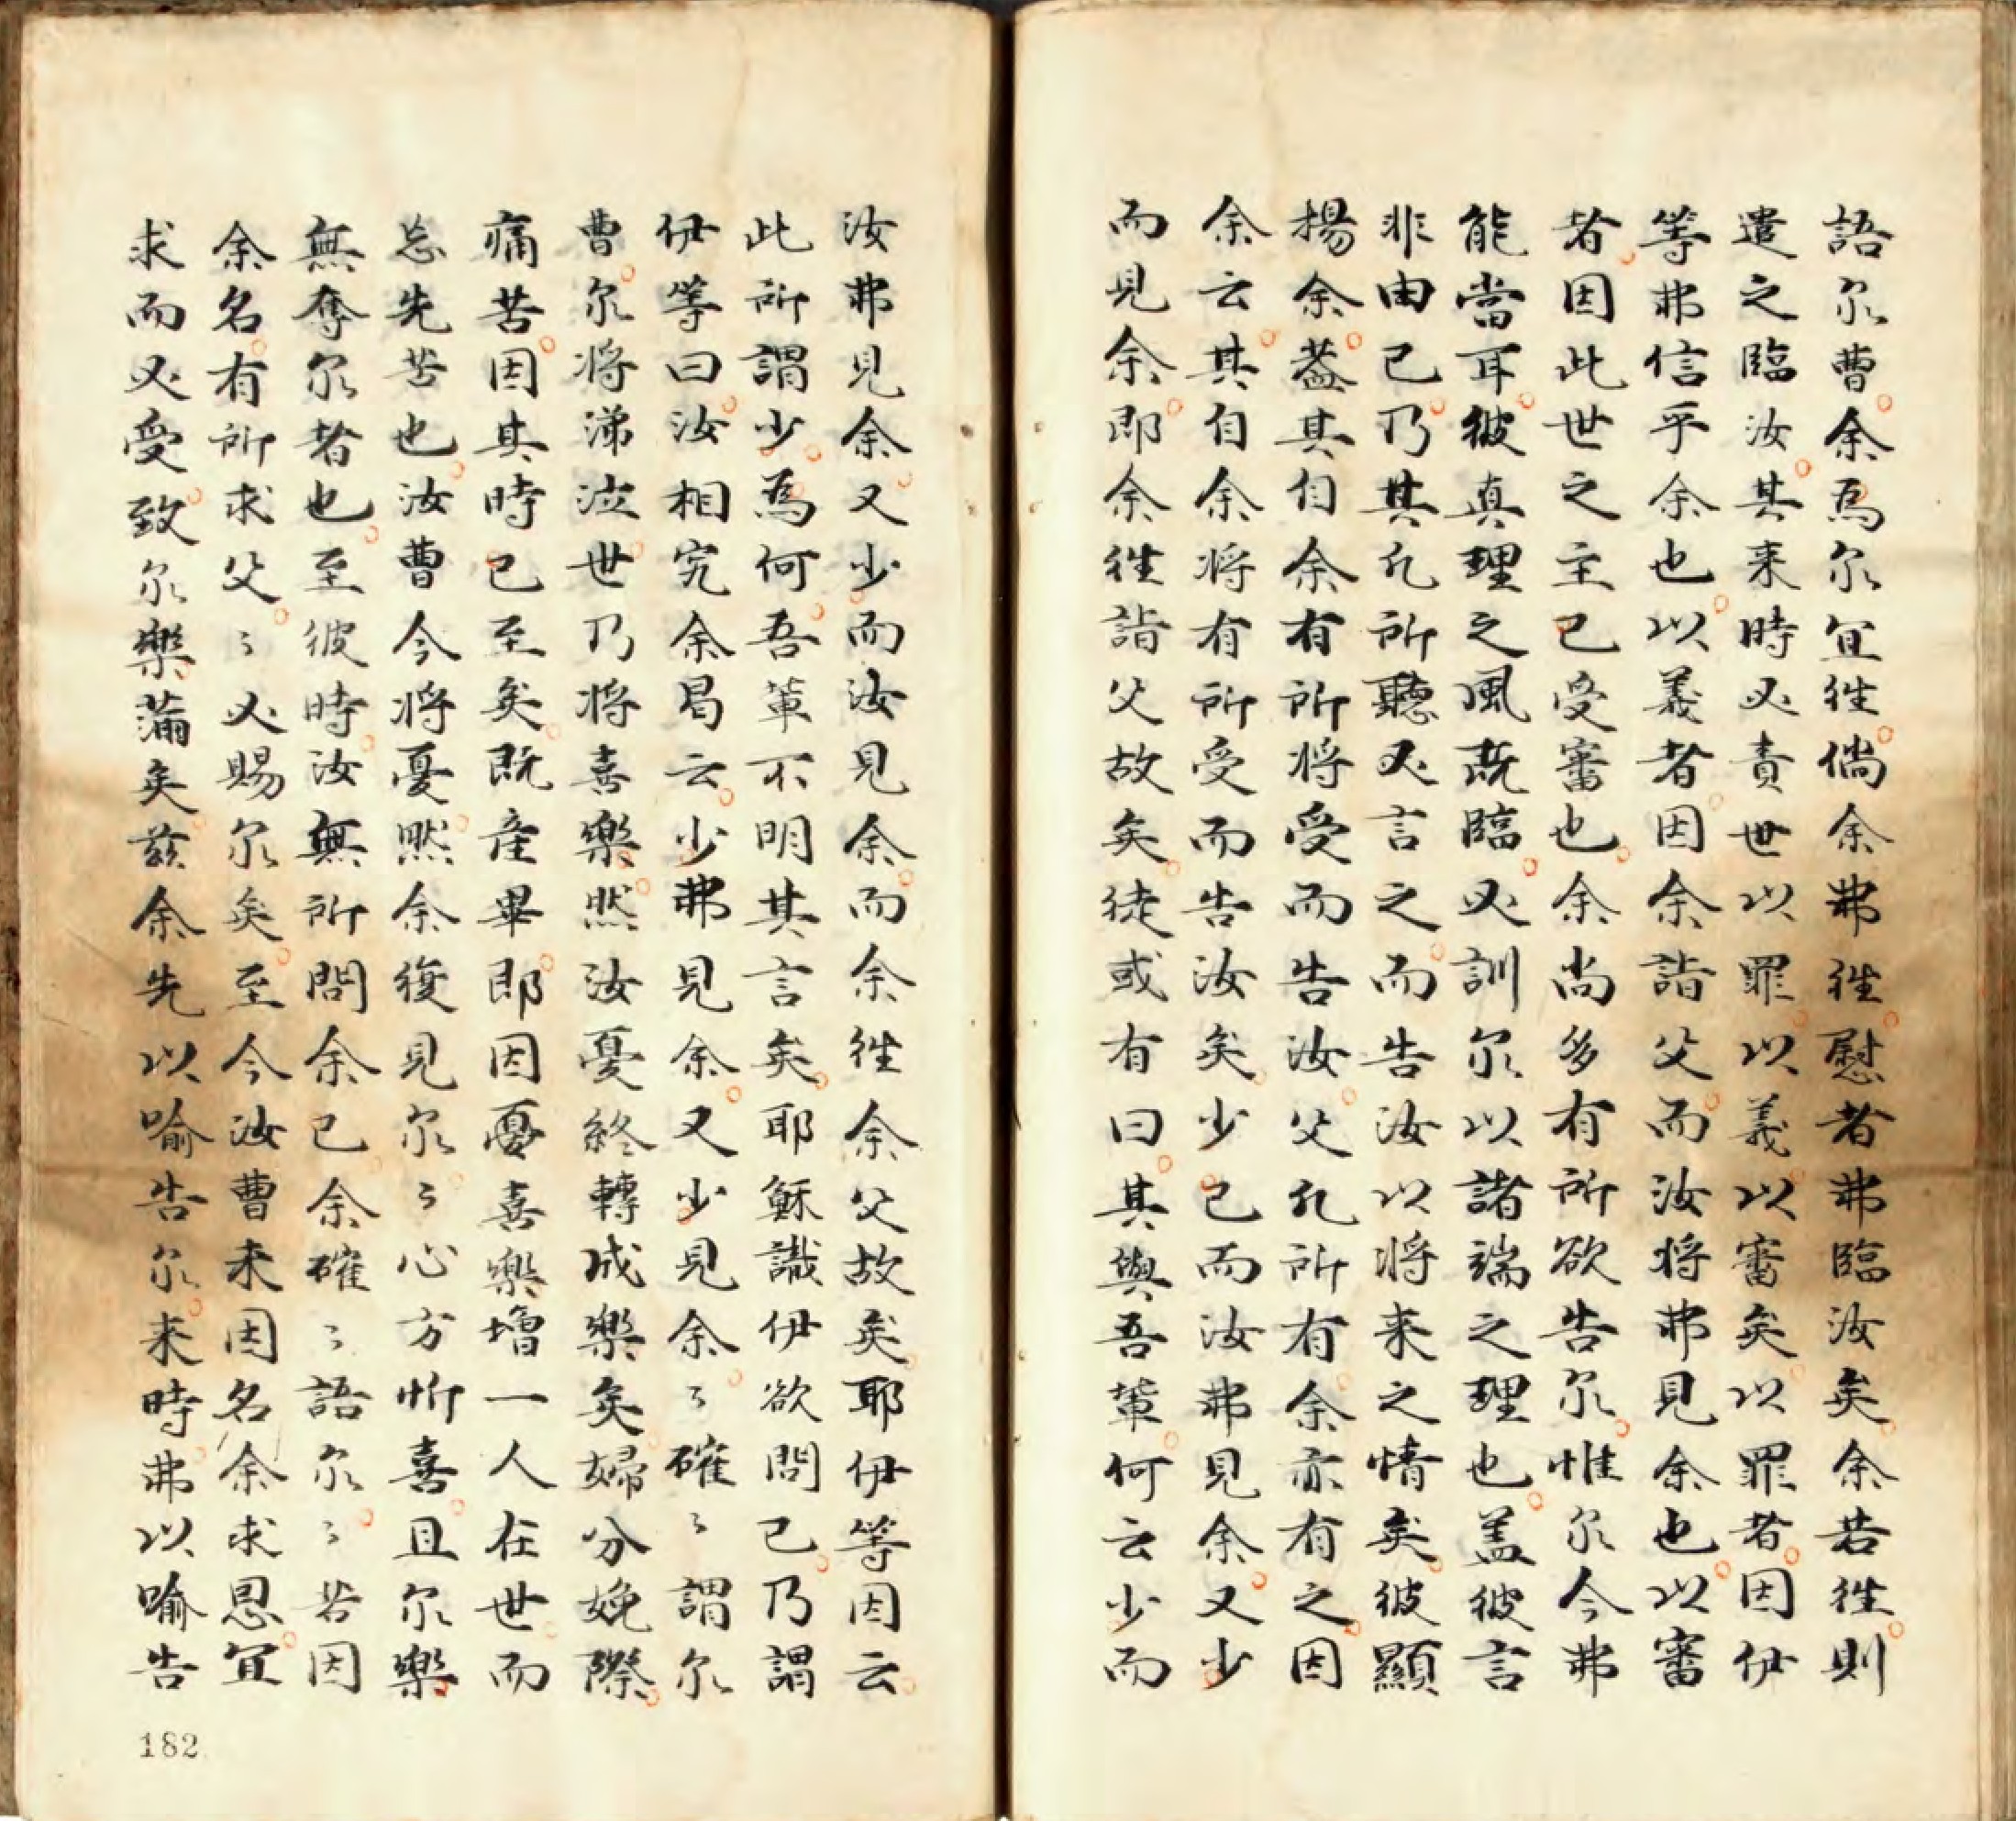 語尔曹余為尔宜徃倘余弗徃慰者弗臨汝矣余若徃則
遣之臨汝其来時必責世以罪以義以審矣以罪者因伊
等弗信乎余也以義者因余詣父而汝将弗見余也以審
者因此世之主已受審也余尚多有所欲告尔惟尔今弗
能當耳彼真理之風既臨必訓尔以諸端之理也盖彼言
非由己乃其凡所聽必言之而告汝以将来之情矣彼顯
揚余葢其自余有所将受而告汝父凡所有余亦有之因
余云其自余将有所受而告汝矣少已而汝弗見余又少
而見余即余徃詣父故矣徒或有曰其與吾輩何云少而
汝弗見余又少而汝見余而余徃余父故矣耶伊等因云
此所謂少為何吾輩不明其言矣耶穌識伊欲問已乃謂
伊等曰汝相究余曷云少弗見余又少見余〻確〻謂尔
曹尔将涕泣世乃将喜樂然汝憂終轉成樂矣婦分娩際
痛苦因其時已至矣既産畢即因憂喜樂增一人在世而
忘先苦也汝曹今将憂然余復見尔〻心方忻喜且尔樂
無奪尔者也至彼時汝無所問余已余確〻語尔〻若因
余名有所求父〻必賜尔矣至今汝曹未因名余求恩宜
求而必受致尔樂滿矣兹余先以喻告尔来時弗以喻告
182